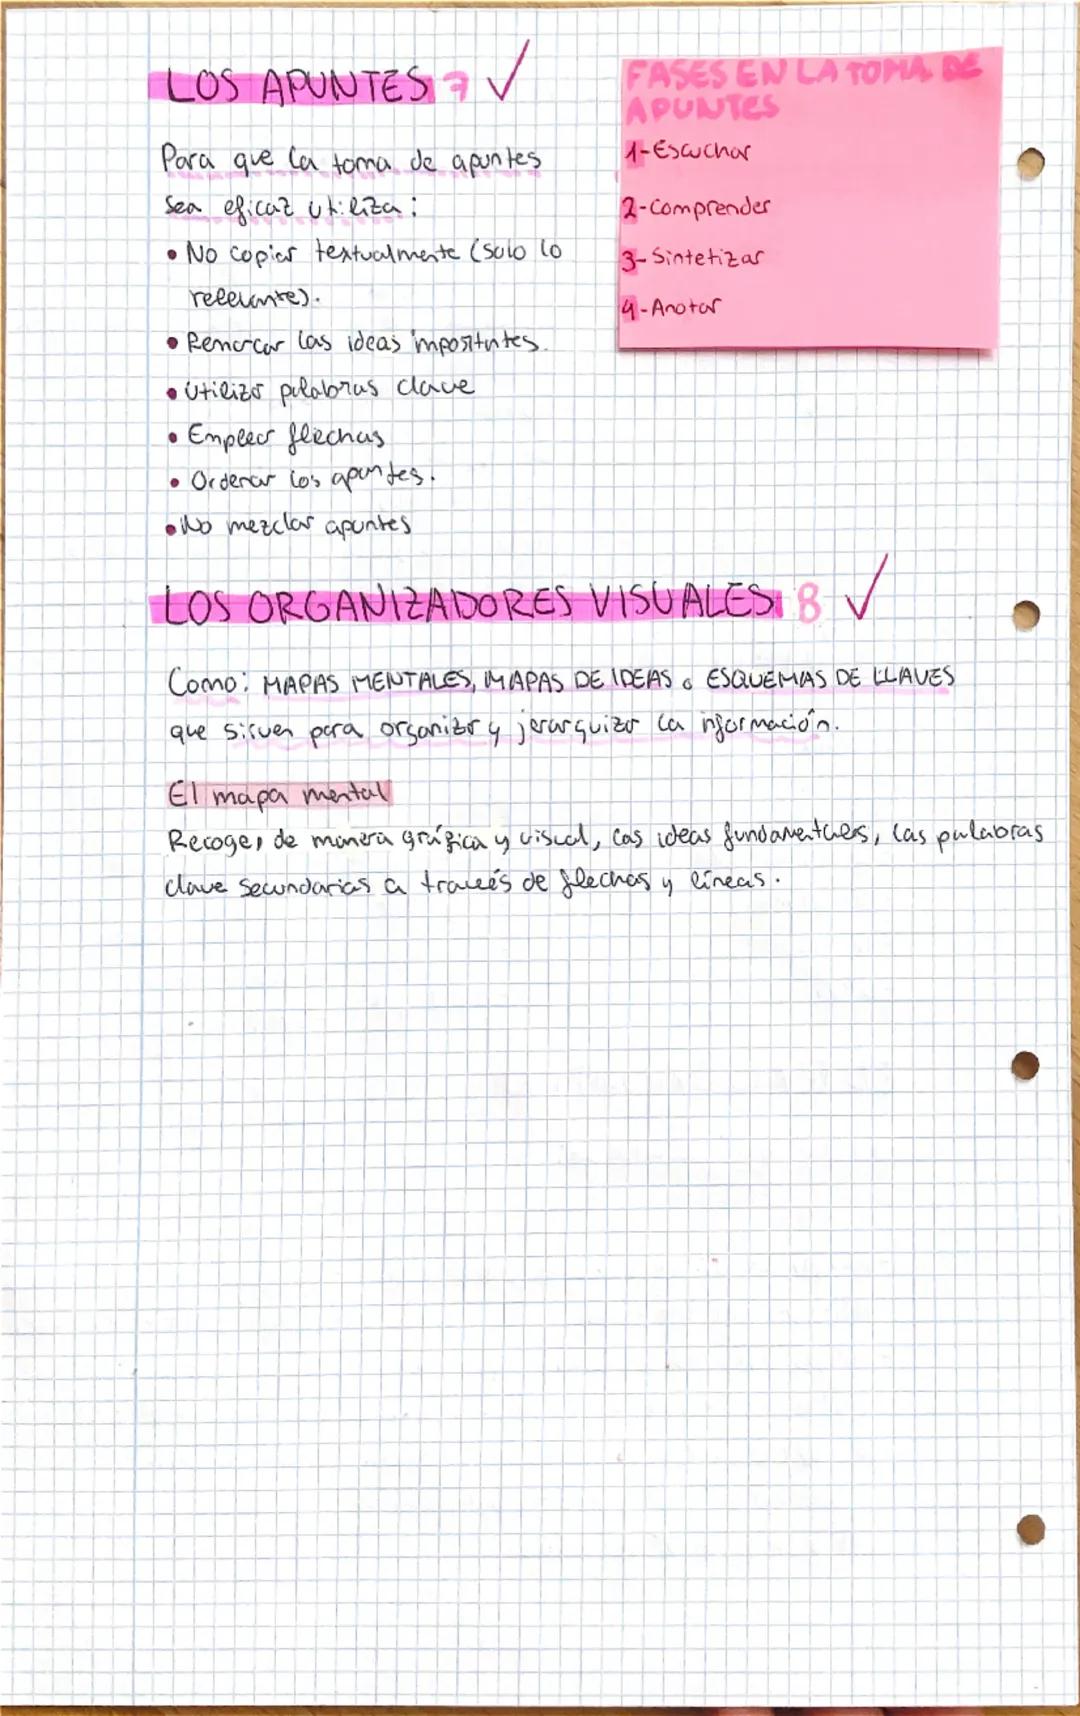 LOS APUNTES 7 ✓
Para que la toma de apuntes
sea eficaz utiliza:
• No copiar textualmente (solo lo
relevante).
• Remarcar las ideas importantes.
• Utilizar palabras clave
• Emplear flechas
• Ordenar los apuntes.
• No mezclar apuntes
FASES EN LA TOMA DE
APUNTES
1-Escuchar
2-Comprender
3-Sintetizar
4-Anotar
LOS ORGANIZADORES VISUALES 8 ✓
Como: MAPAS MENTALES, MAPAS DE IDEAS o ESQUEMAS DE LLAVES
que sirven para organizar y jerarquizar la información.
El mapa mental
Recoge, de manera gráfica y visual, las ideas fundamentales, las palabras
clave secundarias a través de flechas y líneas.